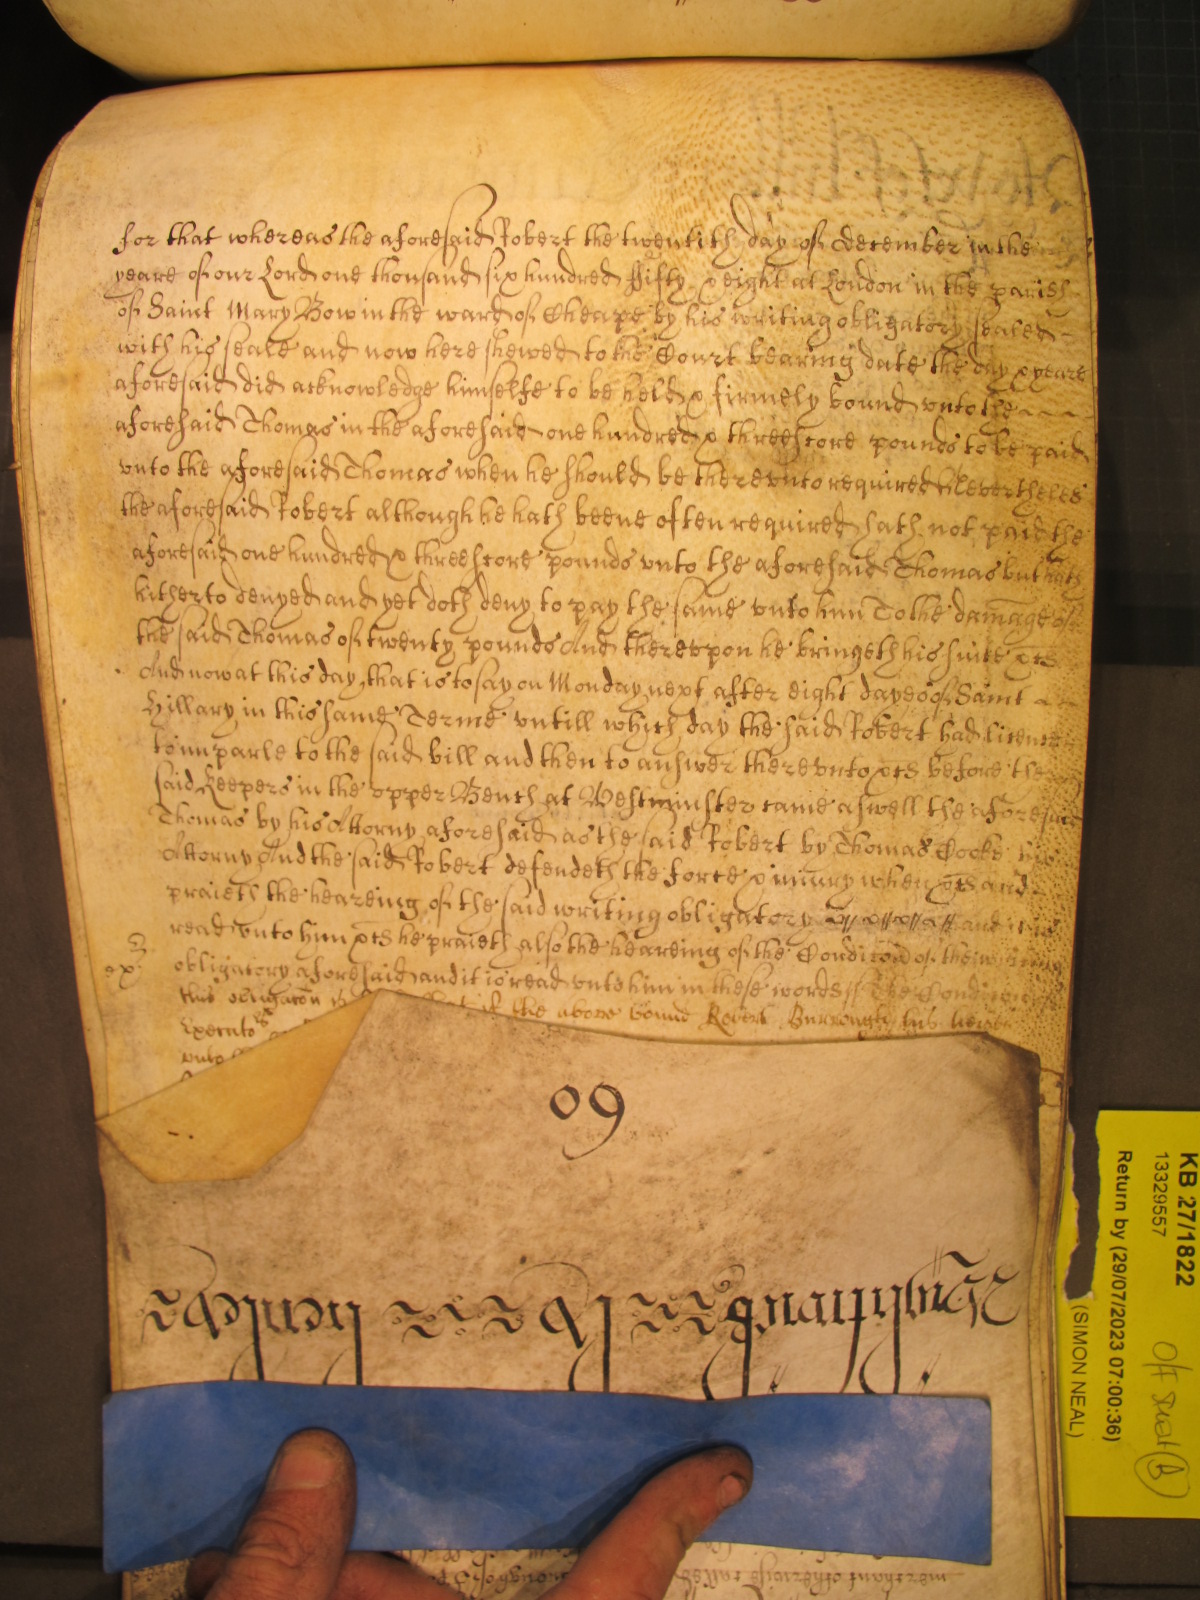 for that whereas the aforesaid Robert the twentith day of december in the
yeare of our Lord one thousand six hundred fifty & eight at London in the parish
of Saint Mary Bow in the ward of Cheape by his writing obligatory sealed
with his seale and now here shewed to the Court bearing date the day & yeare
aforesaid did acknowledge himselfe to be held & firmely bound unto the
aforesaid Thomas in the aforesaid one hundred & threescore pounds to be paid
unto the aforesaid Thomas when he should be thereunto required Nevertheles
the aforesaid Robert although he hath beene often required hath not paid the
aforesaid one hundred & threescore pounds unto the aforesaid Thomas but hath
hitherto denyed and yet doth deny to pay the same unto him To the damage of
the said Thomas of twenty pounds And thereupon he bringeth his suite &c
And now at this day that is to say on Monday next after eight dayes of Saint
Hillary in this same Terme untill which day the said Robert had licence
to imparle to the said bill and then to answer thereunto &c before the
said Keepers in the upper Bench at Westminster came aswell the aforesaid
Thomas by his Attorny aforesaid as the said Robert by Thomas Cooke his
Attorny And the said Robert defendeth the force & iniury when &c and
praieth the heareing of the said writing obligatory and it is
read unto him &c he praieth also the heareing of the Condicion of the writing
obligatory aforesaid and it is read unto him in these words The Condicion
this obligacon is that if the above bound Robert Burroughs his heires
Executors
unto
60
KB 27/1822
13329557
Return by (29/07/2023 07:00:36)
(SIMON NEAL)
merchant otherwise called